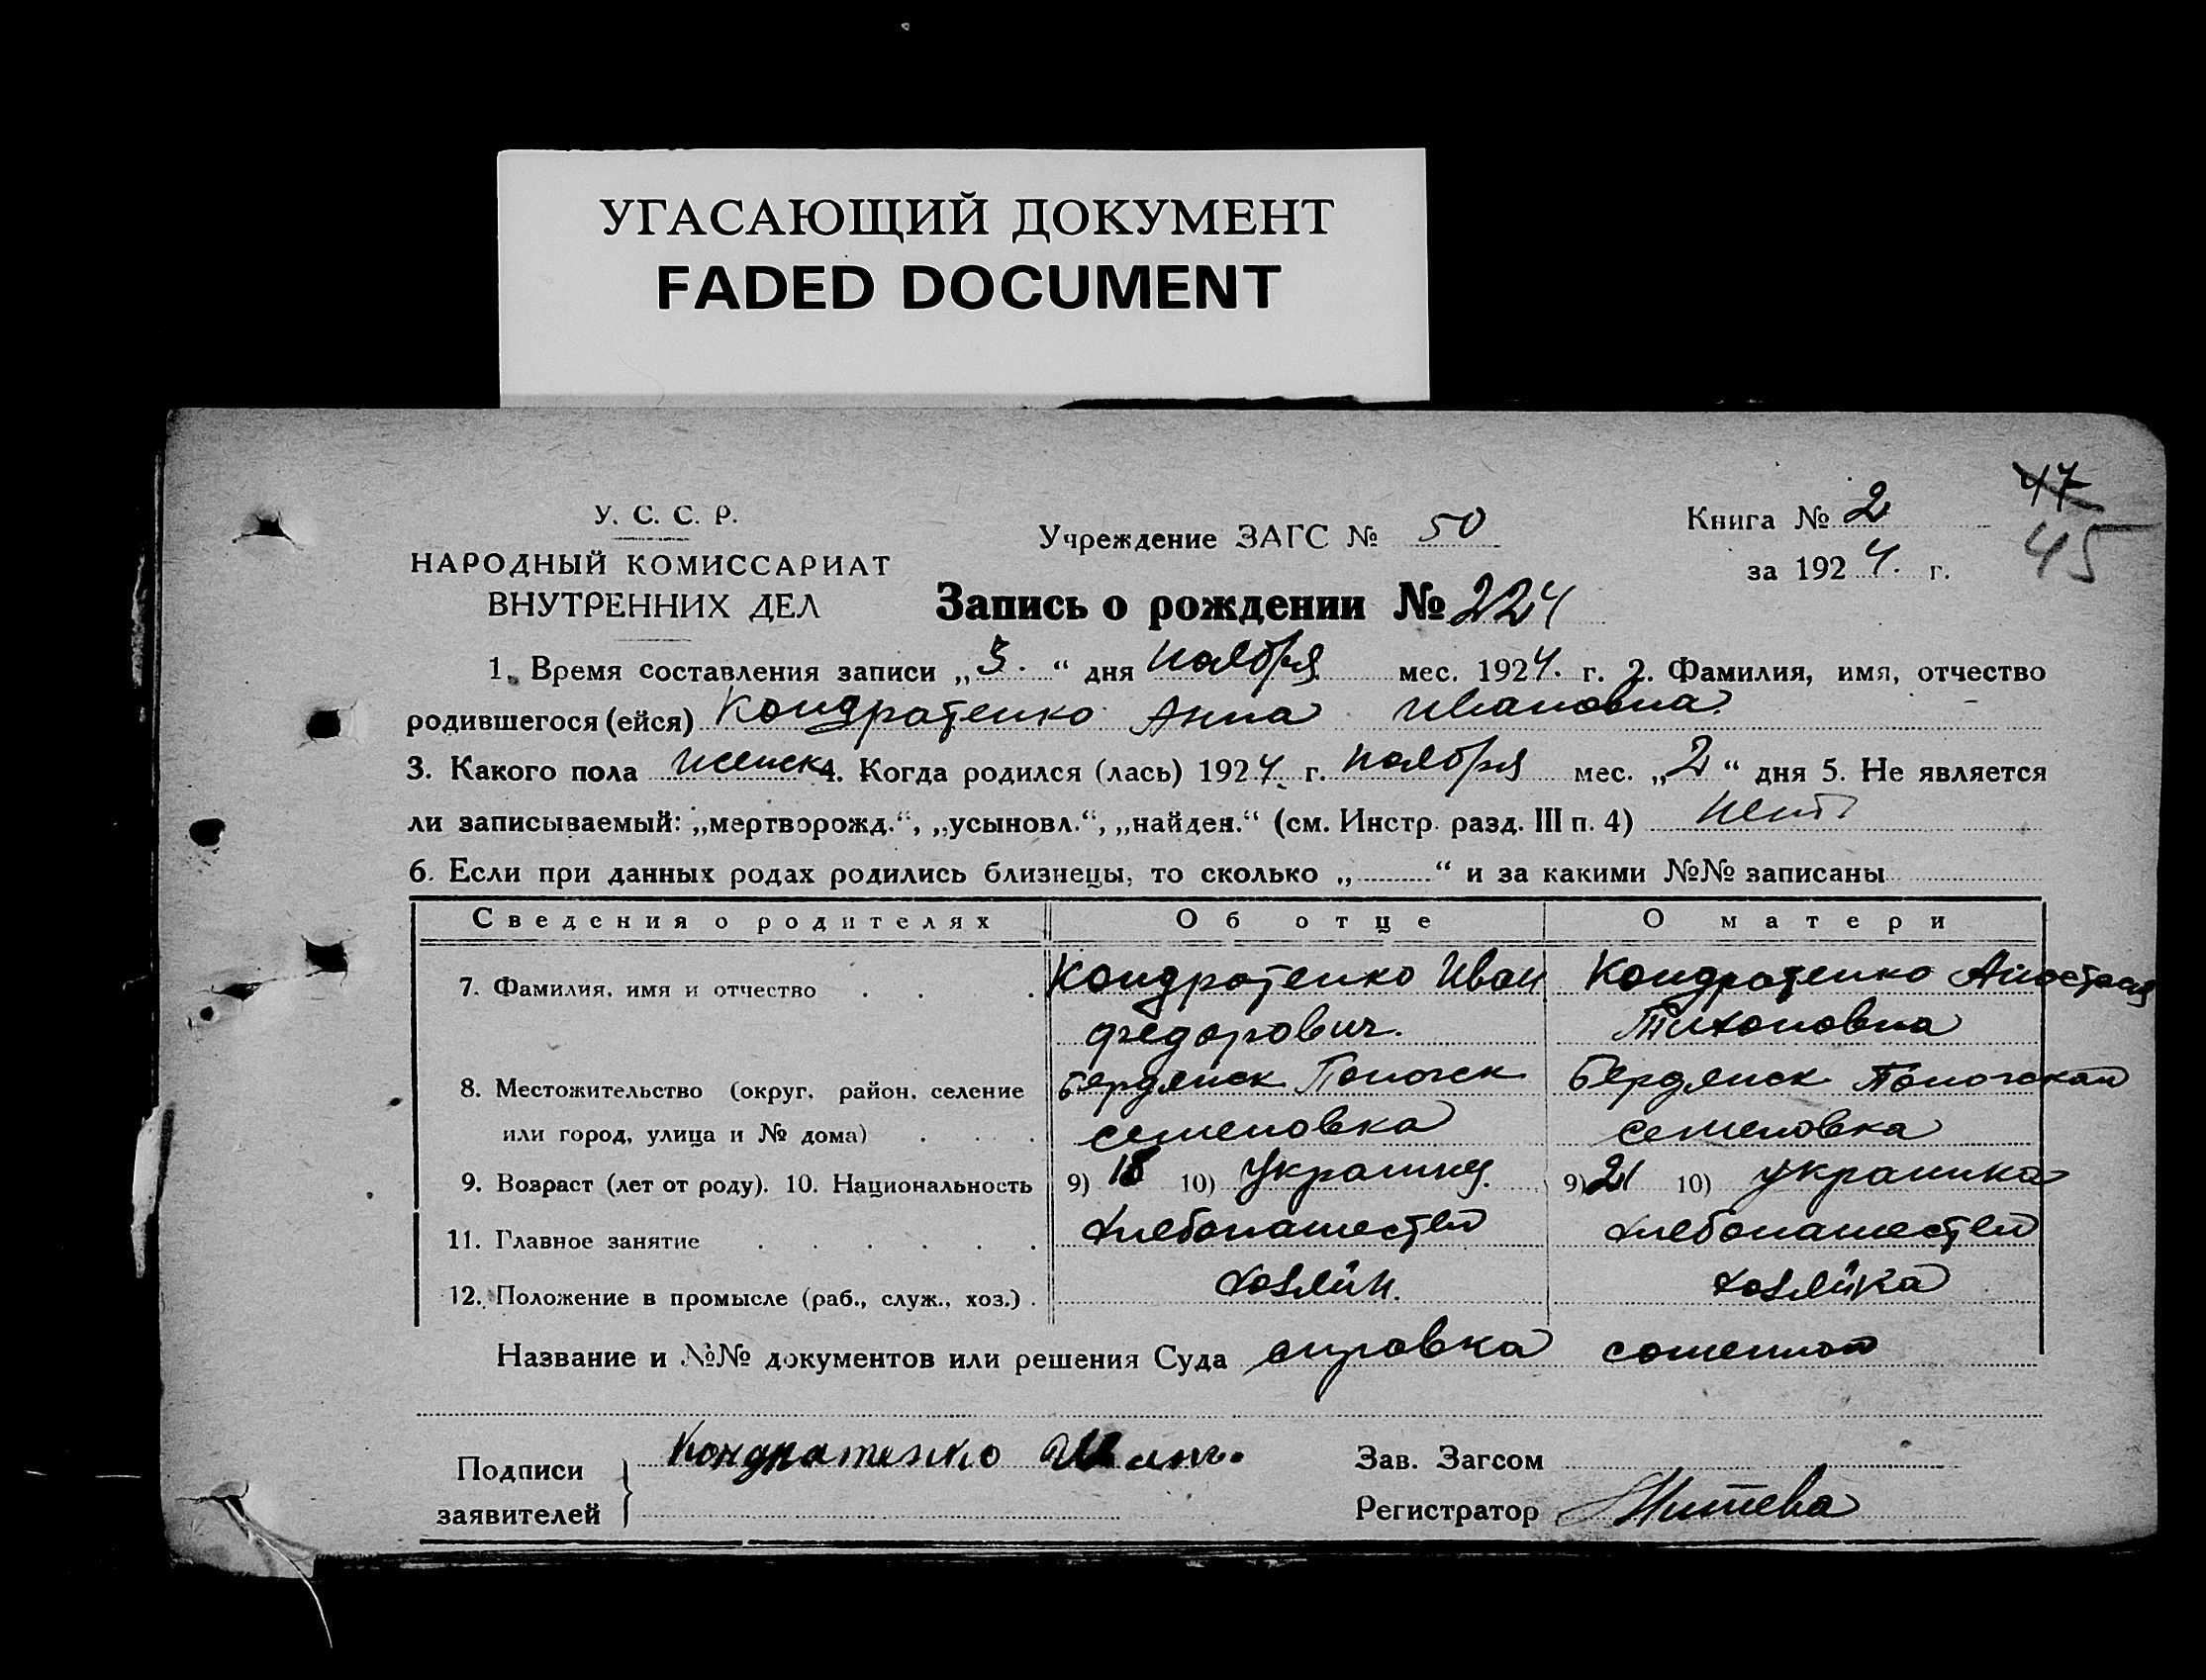 УГАСАЮЩИЙ ДОКУМЕНТ
FADED DOCUMENT
47
У. С. С. Р.
Учреждение ЗАГС № 50
Книга № 2
45
НАРОДНЫЙ КОМИССАРИАТ
за 1924. г.
ВНУТРЕННИХ ДЕЛ
Запись о рождении № 224
1. Время составления записи „3.“ дня ноября мес. 1924. г. 2. Фамилия, имя, отчество
родившегося (ейся) Кондратенко Анна Ивановна.
3. Какого пола женск 4. Когда родился (лась) 1924 г. ноября мес. „2“ дня 5. Не является
ли записываемый: „мертворожд.“, „усыновл.“, „найден.“ (см. Инстр. разд. III п. 4) нет
6. Если при данных родах родились близнецы, то сколько „ “ и за какими №№ записаны
Сведения о родителях Об отце О матери
7. Фамилия, имя и отчество Кондратенко Иван Кондратенко
Федорович. Тихоновна
8. Местожительство (округ, район, селение Бердянск Бердянск
или город, улица и № дома) Семеновка Семеновка
9. Возраст (лет от роду). 10. Национальность 9) 18 10) Украинц. 9) 21 10) Украинка
11. Главное занятие хлебопашество хлебопашество
12. Положение в промысле (раб., служ., хоз.) хозяин. хозяйка
Название и №№ документов или решения Суда справка
Подписи Кондратенко Зав. Загсом
заявителей Регистратор